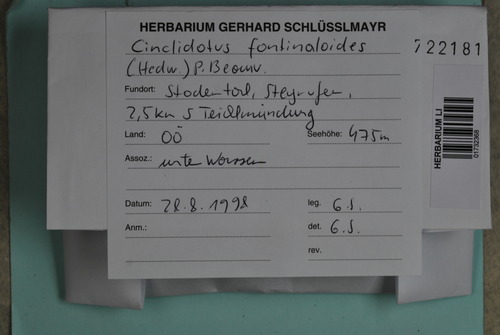 HERBARIUM GERHARD SCHLÜSSLMAYR
Cinclidotus fontinaloides
(Hedw.) P. Beauv.
Fundort: Stodertal, Steyrufer,
2,5km S Teichlmündung
Land: OÖ Seehöhe: 475m
Assoz.: unter Wasser
Datum: 28.8.1998 leg. G.S.
Anm.: det. G.S.
rev.
722181
HERBARIUM LI
01732368